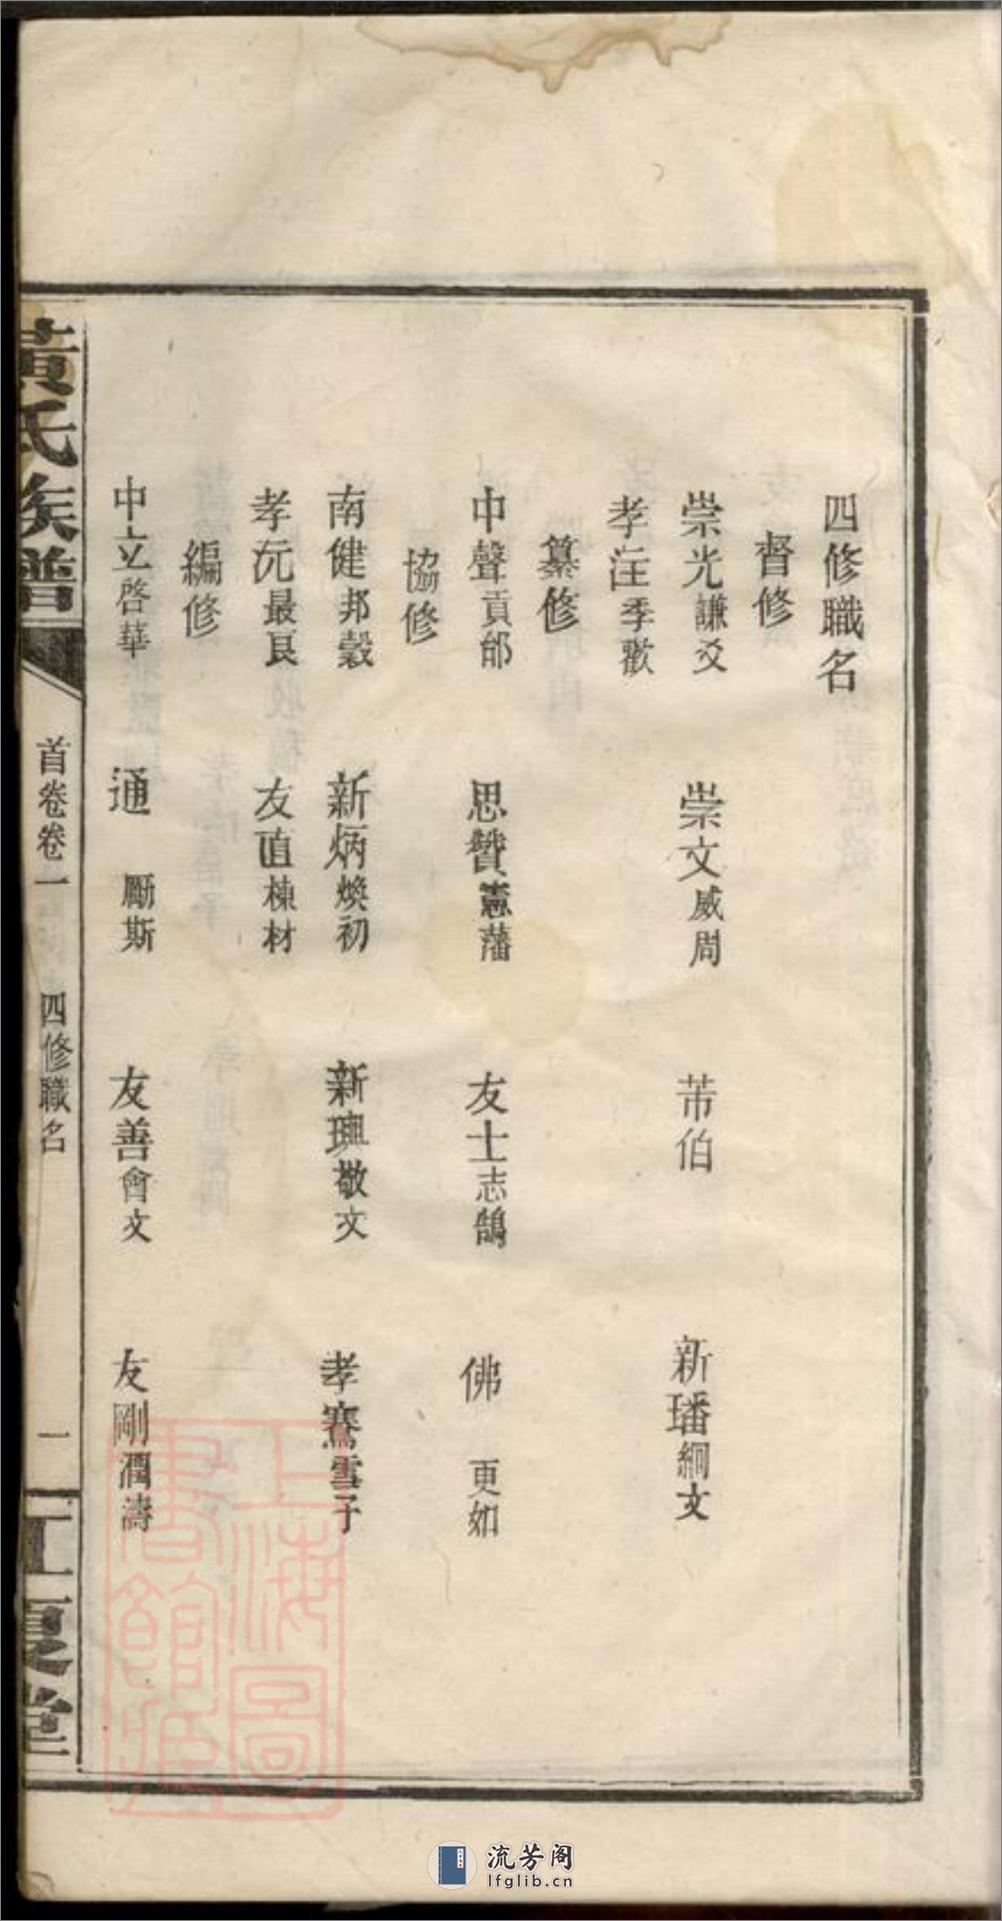 四修職名
督修
崇光謙爻 崇文威周 芾伯 新璠綱文
孝汪季歡
纂修
中聲貢郋 思贊憲藩 友士志鵠 佛 更如
協修
南健邦穀 新炳煥初 新璵敬文 孝騫雪子
孝沅最艮 友直棟材
編修
中立啓華 通 勵斯 友善會文 友剛潤濤
黃氏族譜
首卷卷一 四修職名
一
江夏堂
上海圖書館藏
流芳阁
lfglib.cn